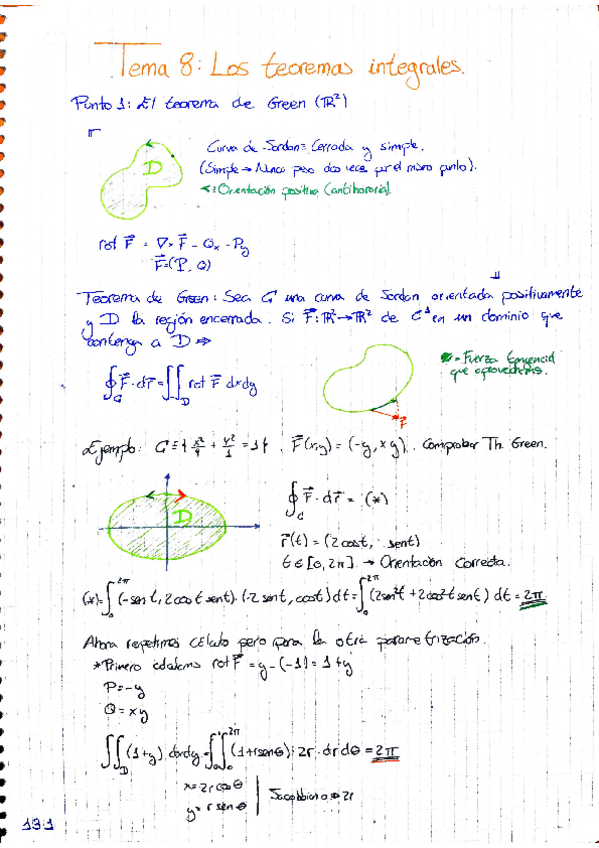 Tema 8: Los teoremas integrales.
Punto 1: El teorema de Green (ℝ²)
D
Curva de Jordan = Cerrada y simple.
(Simple → Nunca pasa dos veces por el mismo punto).
= Orientación positiva (antihoraria).
rot F⃗ = ∇×F⃗ = Qx - Py
F⃗=(P, Q)
Teorema de Green: Sea C una curva de Jordan orientada positivamente
y D la región encerrada. Si F⃗: ℝ²→ℝ² de C¹ en un dominio que
contenga a D ⇒
∮_C F⃗·dr⃗ = ∬_D rot F⃗ dxdy
= Fuerza tangencial
que aprovechamos.
F⃗
Ejemplo: C ≡ { x²/4 + y²/1 = 1 }. F⃗(x,y) = (-y, xy). Comprobar Th. Green.
D
∮_C F⃗·dr⃗ = (*)
r⃗(t) = (2cost, sent)
t ∈ [0, 2π] → Orientación correcta.
(*) = ∫₀^2π (-sent, 2cost sent)·(-2sent, cost) dt = ∫₀^2π (2sen²t + 2cos²t sent) dt = 2π
Ahora repetimos cálculo pero para la otra parametrización.
*Primero calculamos rot F⃗ = y - (-1) = 1+y
P = -y
Q = xy
∬_D (1+y) dxdy = ∫₀¹∫₀^2π (1+rsenθ)·2r·drdθ = 2π
x = 2r cosθ
y = r senθ
Jacobbiano → 2r
13.1